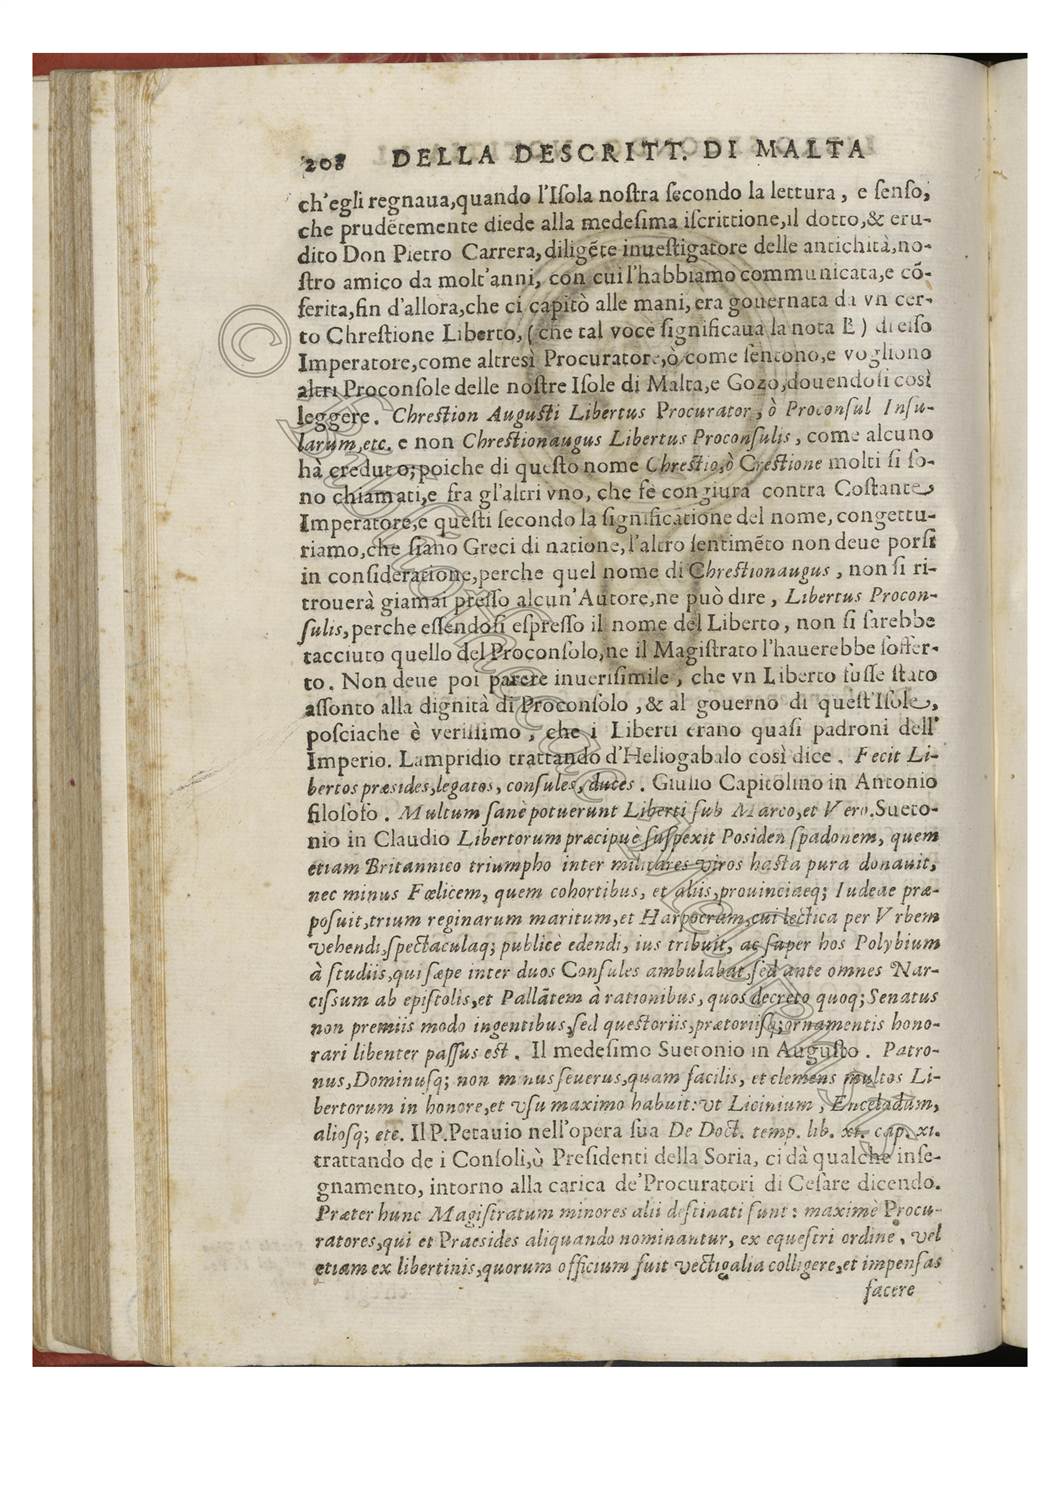 208 DELLA DESCRITT. DI MALTA
ch'egli regnaua,quando l'Iſola noſtra ſecondo la lettura, e ſenſo,
che prudẽtemente diede alla medeſima iſcrittione,il dotto,& eru-
dito Don Pietro Carrera,diligẽte inueſtigatore delle antichità,no-
ſtro amico da molt'anni, con cui l'habbiamo communicata,e cõ-
ferita,fin d'allora,che ci capitò alle mani, era gouernata da vn cer-
to Chreſtione Liberto, (che tal voce ſignificaua la nota Ł) di eſſo
Imperatore,come altresì Procuratore,ò come ſentono,e vogliono
altri Proconſole delle noſtre Iſole di Malta,e Gozo,douendoſi così
leggere. Chreſtion Auguſti Libertus Procurator, ò Proconſul Inſu-
larum,etc. e non Chreſtionaugus Libertus Proconſulis, come alcuno
hà creduto;poiche di queſto nome Chreſtio,ò Creſtione molti ſi ſo-
no chiamati,e fra gl'altri vno, che fè congiura contra Coſtante
Imperatore,e queſti ſecondo la ſignificatione del nome, congettu-
riamo,che ſiano Greci di natione,l'altro ſentimẽto non deue porſi
in conſideratione,perche quel nome di Chreſtionaugus, non ſi ri-
trouerà giamai preſſo alcun'Autore,ne può dire, Libertus Procon-
ſulis,perche eſſendoſi eſpreſſo il nome del Liberto, non ſi ſarebbe
tacciuto quello del Proconſolo,ne il Magiſtrato l'hauerebbe ſoffer-
to. Non deue poi parere inueriſimile, che vn Liberto fuſſe ſtato
aſſonto alla dignità di Proconſolo,& al gouerno di queſt'Iſole,
poſciache è veriſſimo, che i Liberti erano quaſi padroni dell'
Imperio. Lampridio trattando d'Heliogabalo così dice. Fecit Li-
bertos præsides,legatos, conſules,duces. Giulio Capitolino in Antonio
filoſofo. Multum ſanè potuerunt Liberti ſub Marco,et Vero.Sueto-
nio in Claudio Libertorum præcipuè ſuſpexit Poſiden ſpadonem, quem
etiam Britannico triumpho inter militares viros haſta pura donauit,
nec minus Fœlicem, quem cohortibus, et aliis,prouinciaeq; Iudeae præ-
poſuit,trium reginarum maritum,et Harpocram,cui lectica per Vrbem
vehendi,ſpectaculaq; publicè edendi, ius tribuit, ac ſuper hos Polybium
à ſtudiis,qui ſæpe inter duos Conſules ambulabat,ſed ante omnes Nar-
ciſſum ab epiſtolis,et Pallãtem à rationibus, quos decreto quoq; Senatus
non premiis modo ingentibus,ſed queſtoriis,prætoriiſq;ornamentis hono-
rari libenter paſſus eſt. Il medeſimo Suetonio in Auguſto. Patro-
nus,Dominuſq; non minus ſeuerus,quam facilis, et clemens multos Li-
bertorum in honore,et vſu maximo habuit: vt Licinium, Enceladum,
alioſq; etc. Il P.Petauio nell'opera ſua De Doct. temp. lib. xi. cap. xi.
trattando de i Conſoli,ò Preſidenti della Soria, ci dà qualche inſe-
gnamento, intorno alla carica de'Procuratori di Ceſare dicendo.
Præter hunc Magiſtratum minores alii deſtinati ſunt: maximè Procu-
ratores,qui et Praesides aliquando nominantur, ex equeſtri ordine, vel
etiam ex libertinis,quorum officium fuit vectigalia colligere,et impenſas
facere